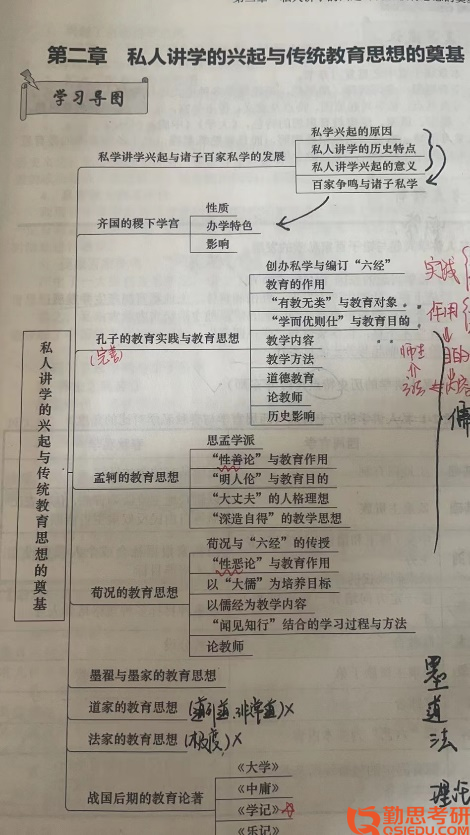 第二章 私人讲学的兴起与传统教育思想的奠基
学习导图
私人讲学的兴起与传统教育思想的奠基
私学讲学兴起与诸子百家私学的发展
私学兴起的原因
私人讲学的历史特点
私人讲学兴起的意义
百家争鸣与诸子私学
齐国的稷下学宫
性质
办学特色
影响
孔子的教育实践与教育思想
(完善)
创办私学与编订“六经”
教育的作用
“有教无类”与教育对象
“学而优则仕”与教育目的
教学内容
教学方法
道德教育
论教师
历史影响
实践
作用
目的
内容
师生
孟轲的教育思想
思孟学派
“性善论”与教育作用
“明人伦”与教育目的
“大丈夫”的人格理想
“深造自得”的教学思想
荀况的教育思想
荀况与“六经”的传授
“性恶论”与教育作用
以“大儒”为培养目标
以儒经为教学内容
“闻见知行”结合的学习过程与方法
论教师
墨翟与墨家的教育思想
道家的教育思想
法家的教育思想
墨
道
法
战国后期的教育论著
《大学》
《中庸》
《学记》
《乐记》
勤思考研
QSIEDU.COM